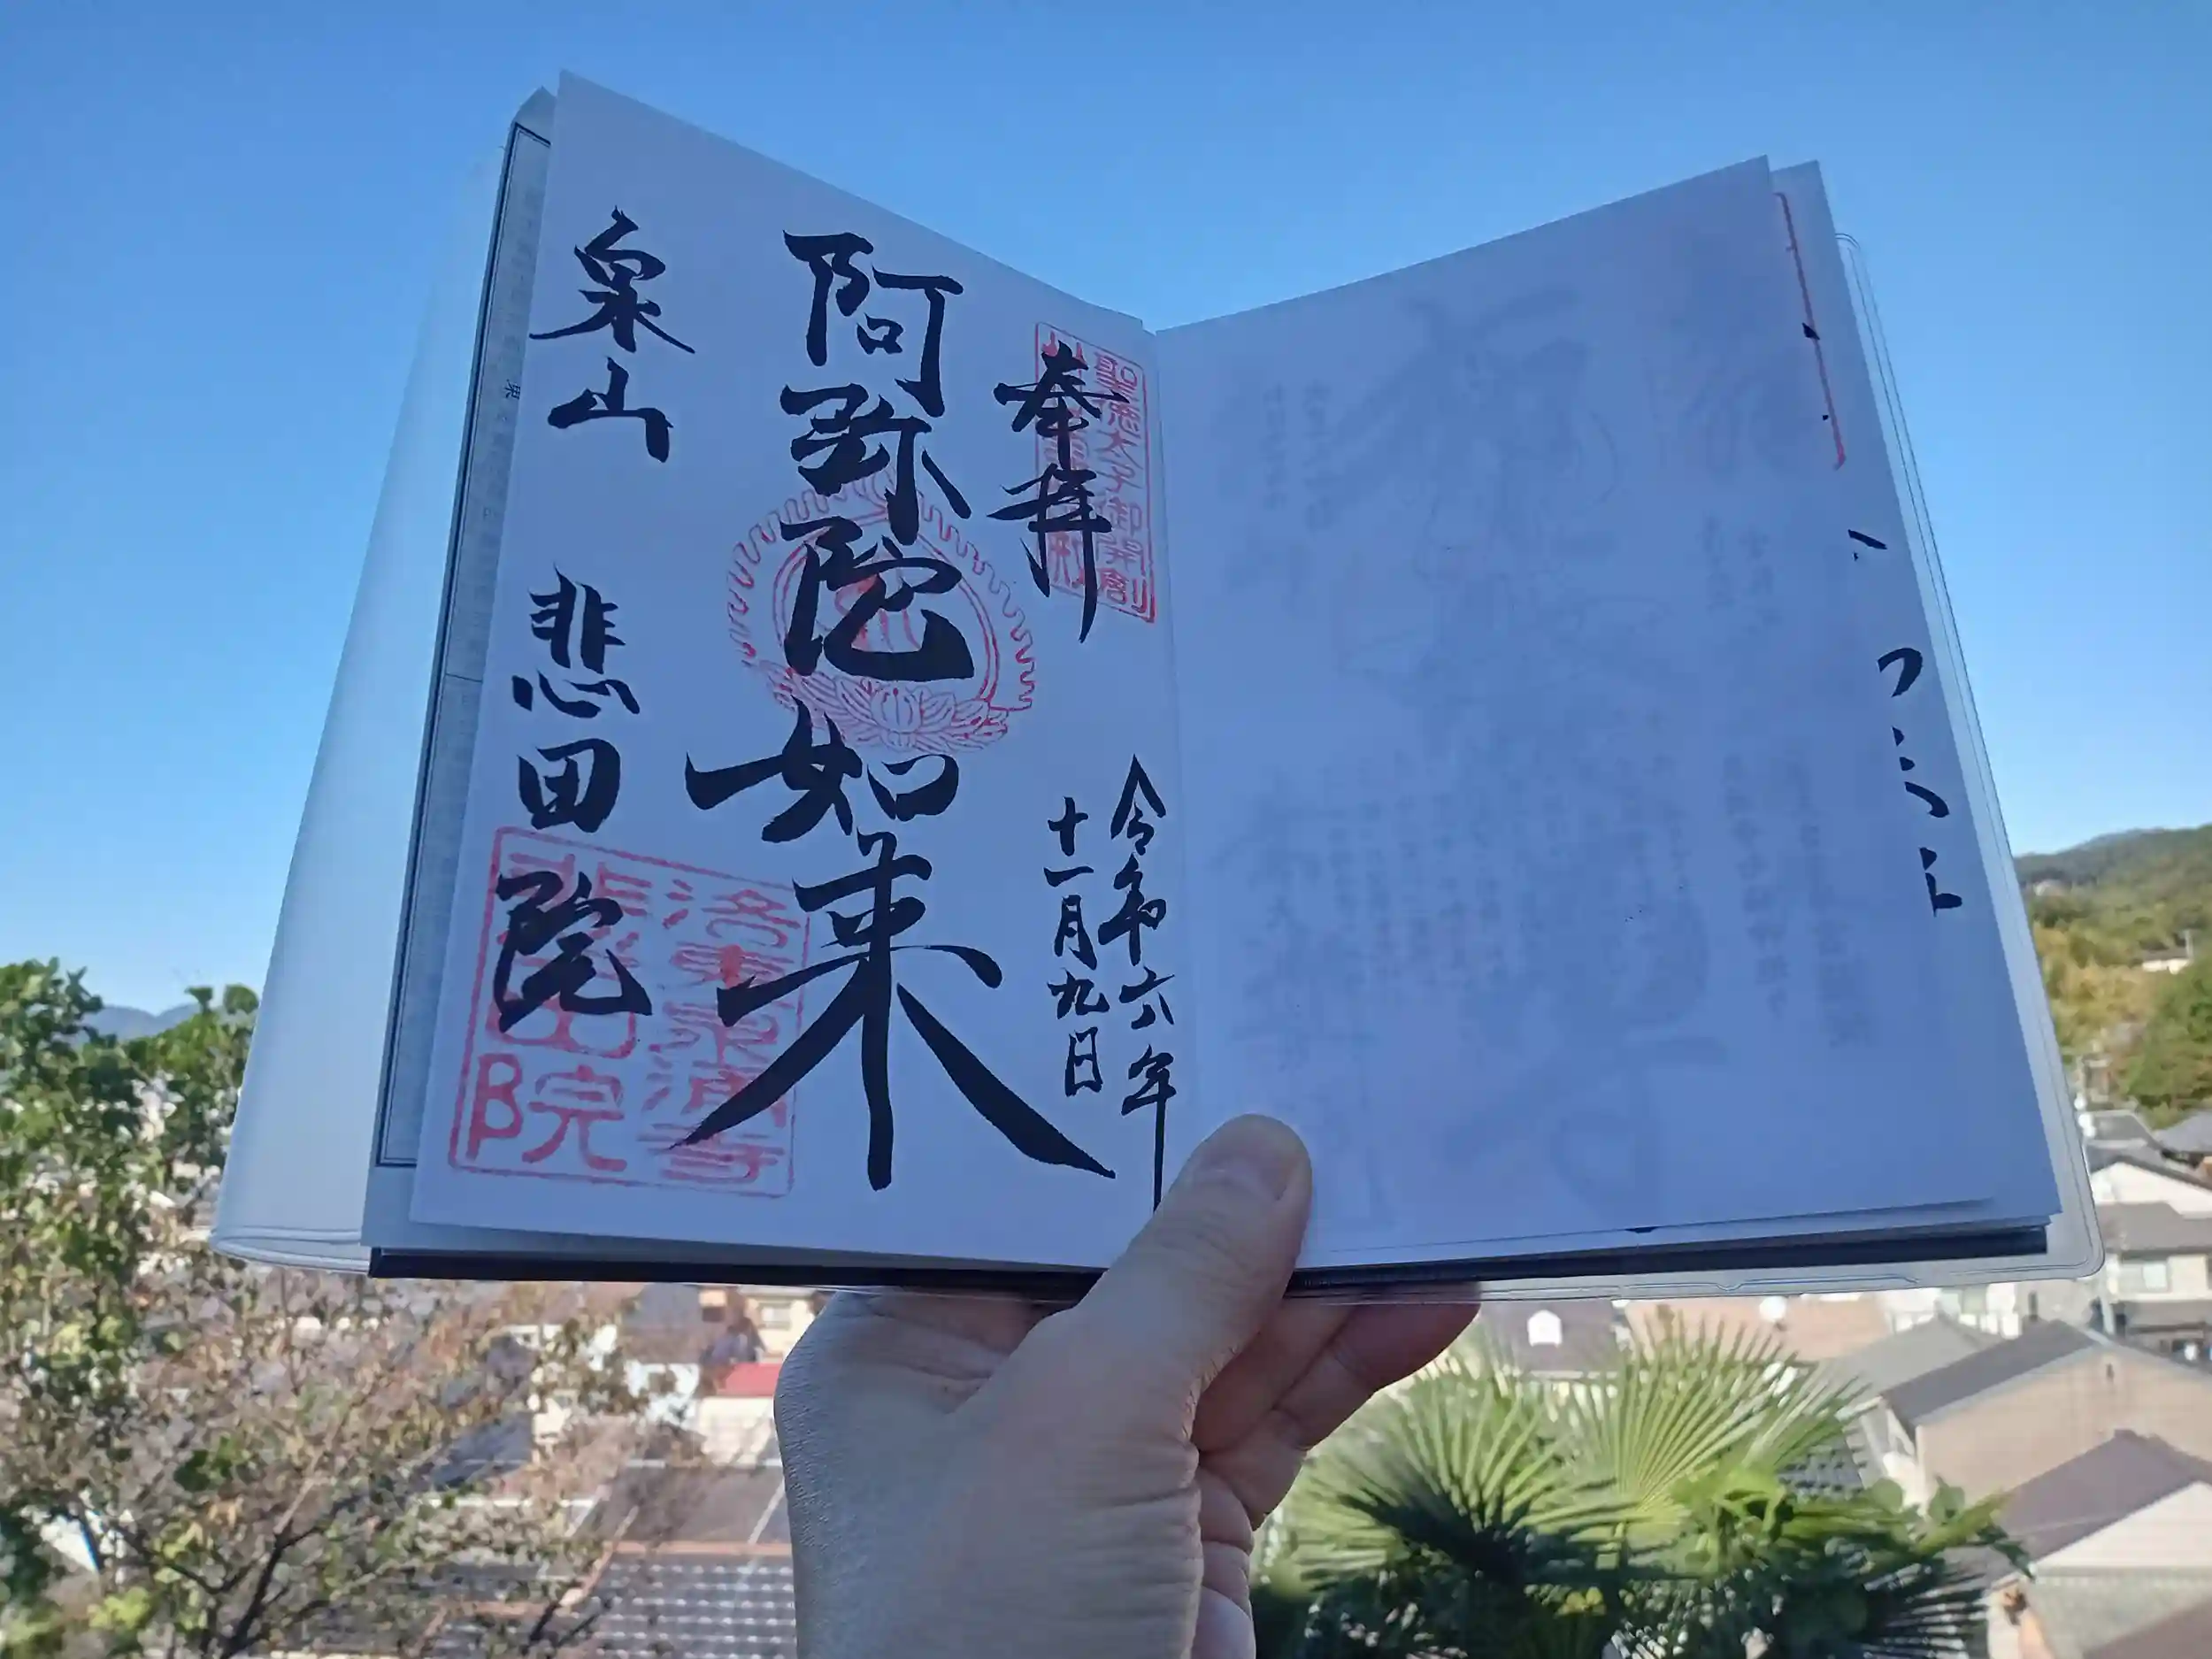 奉拝
令和六年
十一月九日
聖徳太子御開創
阿弥陀如来
泉山
悲田院
洛東泉涌寺
悲田院